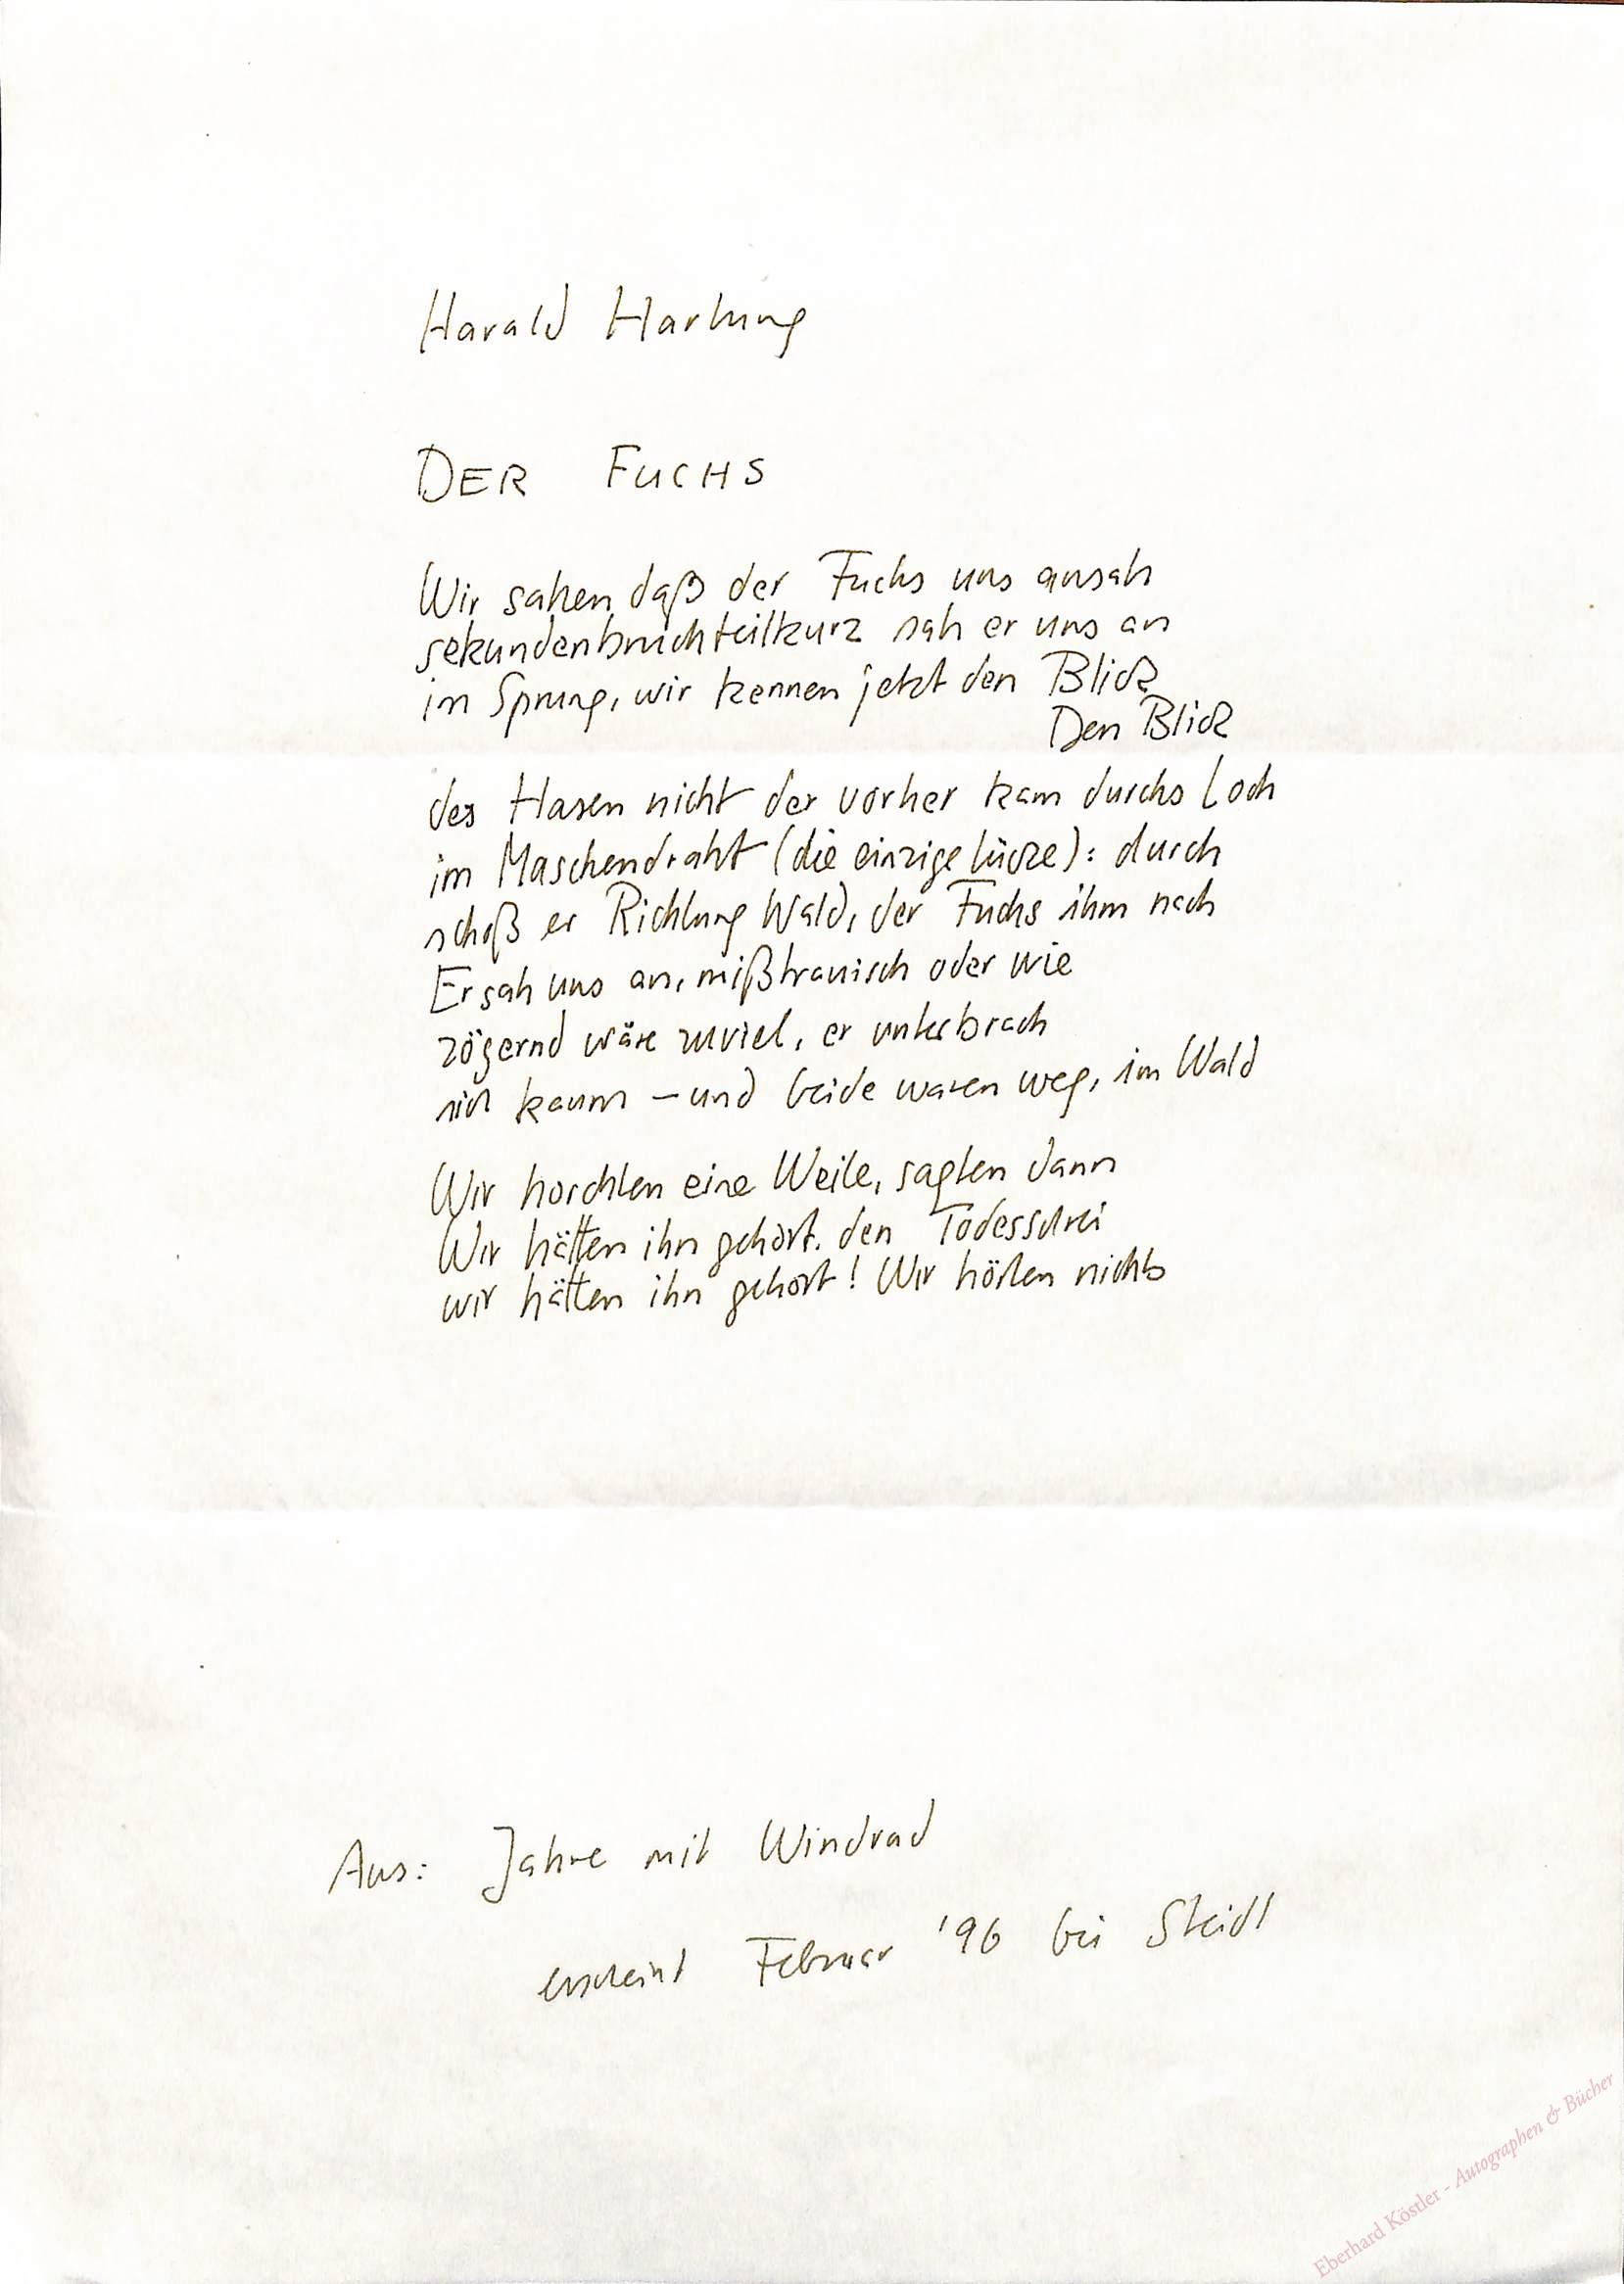 Harald Hartung
DER FUCHS
Wir sahen daß der Fuchs uns ansah
sekundenbruchteilkurz sah er uns an
im Sprung, wir kennen jetzt den Blick
Den Blick
des Hasen nicht der vorher kam durchs Loch
im Maschendraht (die einzige Lücke): durch
schoß er Richtung Wald, der Fuchs ihm nach
Er sah uns an, mißtrauisch oder wie
zögernd wäre zuviel, er unterbrach
sich kaum – und beide waren weg, im Wald
Wir horchten eine Weile, sagten dann
Wir hätten ihn gehört. den Todesschrei
wir hätten ihn gehört! Wir hörten nichts
Aus: Jahre mit Windrad
erscheint Februar '96 bei Steidl
Eberhard Köstler - Autographen & Bücher